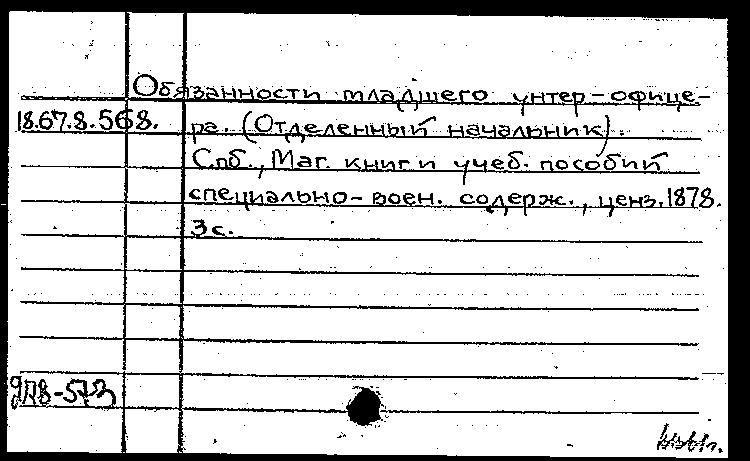 Обязанности младшего унтер-офице-
18.67.8.568. ра. (Отделенный начальник).
Спб., Маг. книг и учеб. пособий
специально-воен. содерж., ценз. 1878.
3 с.